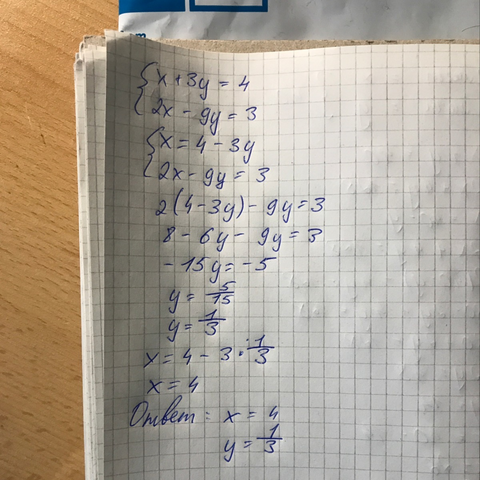 {x + 3y = 4
{2x - 9y = 3
{x = 4 - 3y
{2x - 9y = 3
2(4 - 3y) - 9y = 3
8 - 6y - 9y = 3
-15y = -5
y = 5/15
y = 1/3
x = 4 - 3 · 1/3
x = 4
Ответ: x = 4
y = 1/3